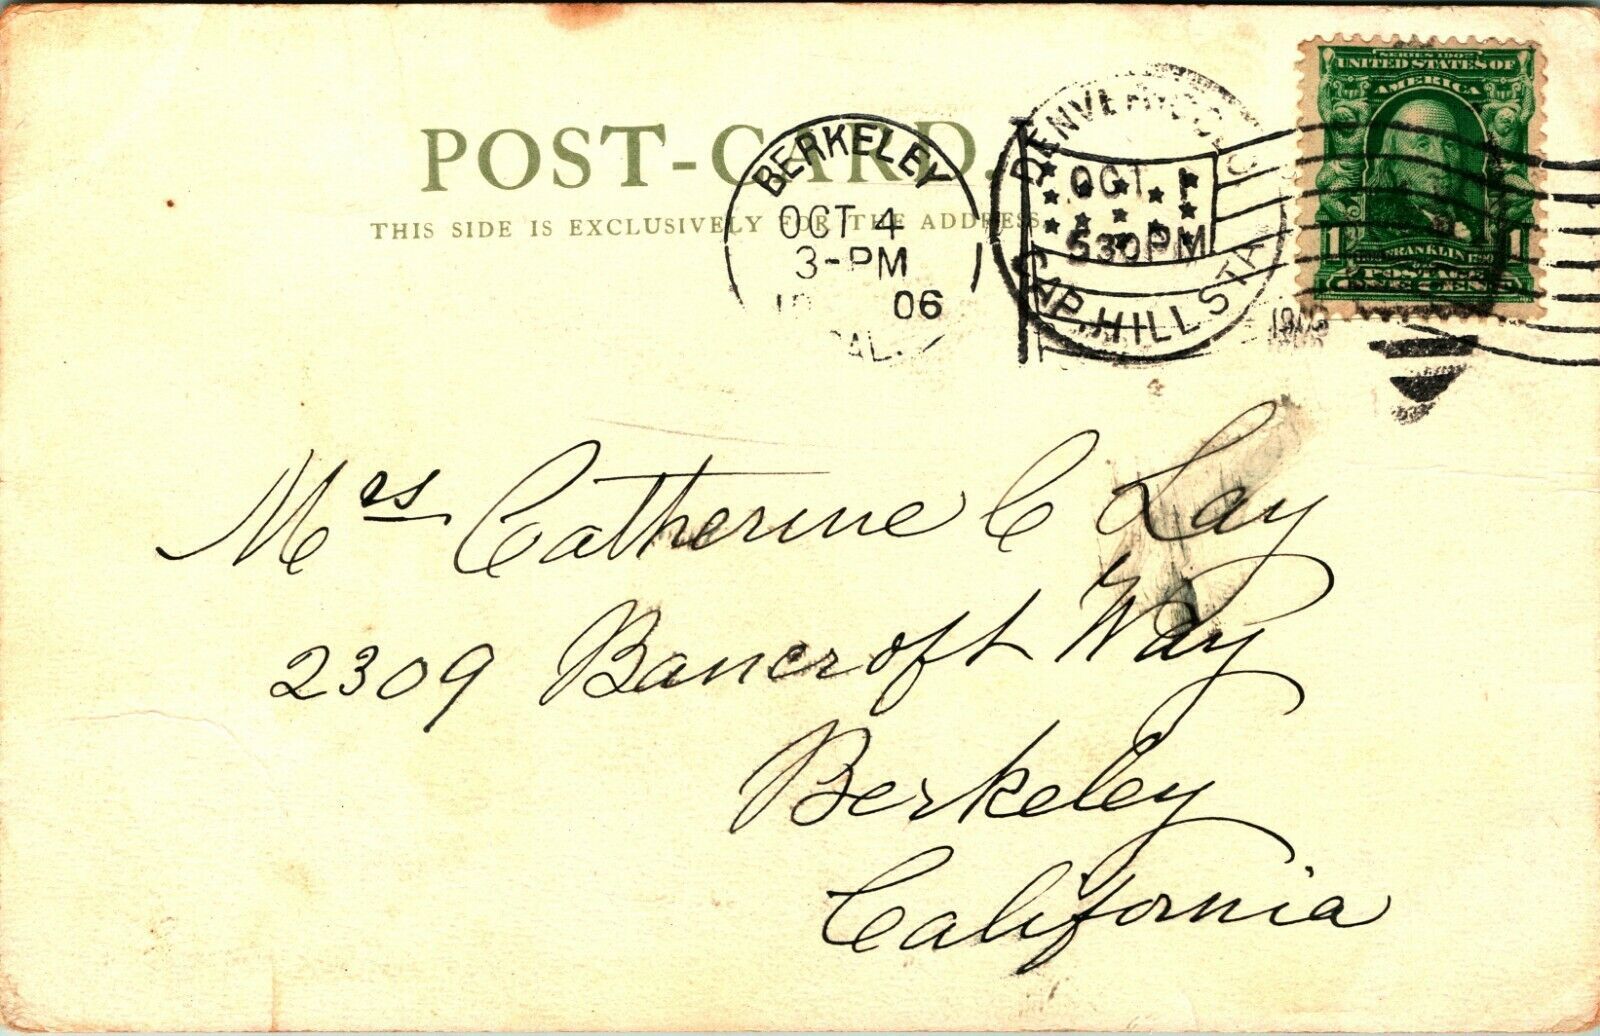 POST-CARD.
THIS SIDE IS EXCLUSIVELY FOR THE ADDRESS
BERKELEY
OCT 4
3-PM
06
CAL.
DENVER, COLO
OCT 1
530PM
CAP. HILL STA
1906
SERIES 1902
UNITED STATES OF
AMERICA
FRANKLIN
1 1
POSTAGE
Mrs Catherine C Lay
2309 Bancroft Way
Berkeley
California